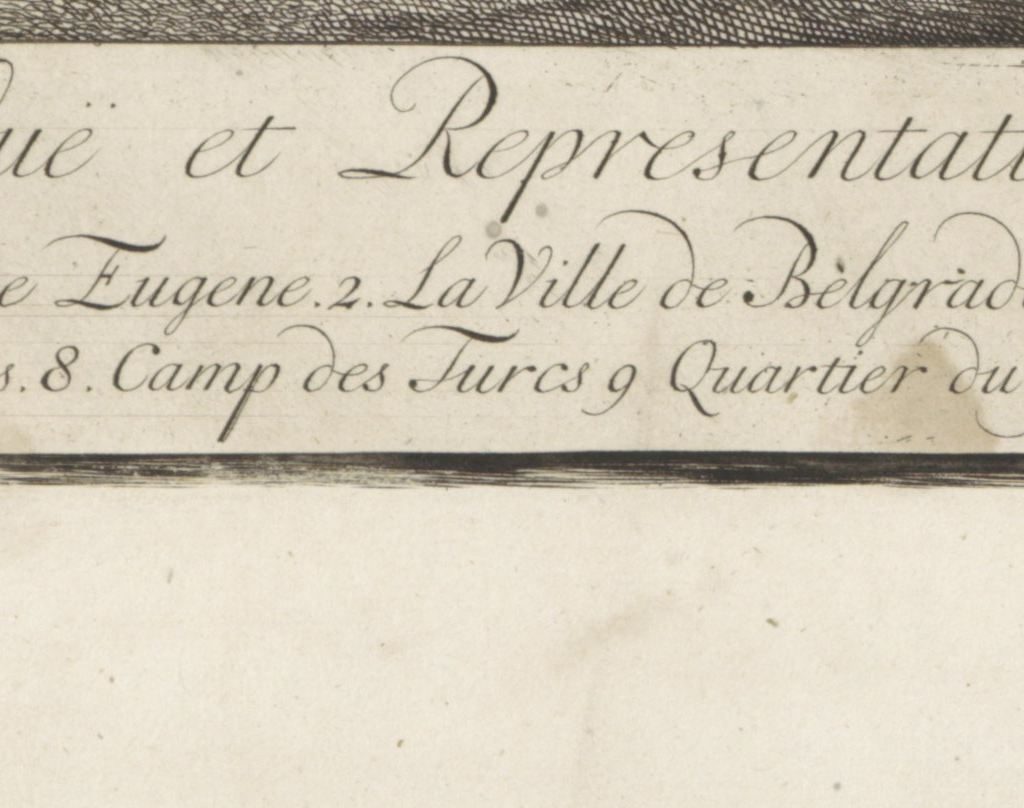 uë et Representati
e Eugene. 2. La Ville de Belgrad
s. 8. Camp des Turcs 9 Quartier du